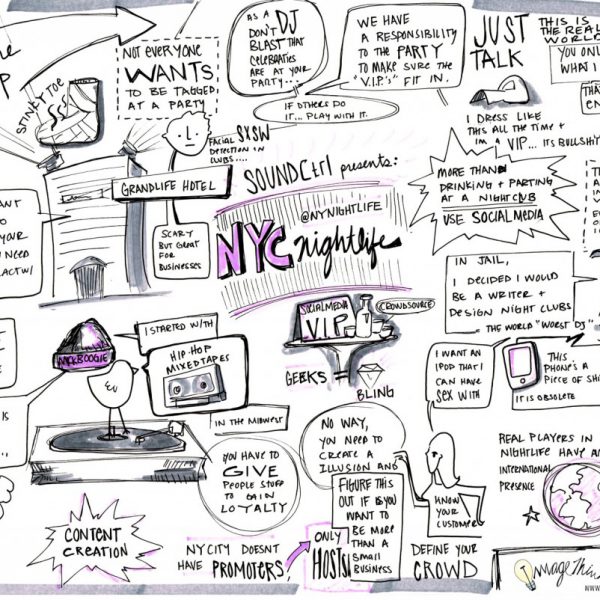 NOT EVERYONE
WANTS
TO BE TAGGED
AT A PARTY
STINKY TOE
AS A
DJ
DON'T
BLAST THAT
CELEBRATIES
ARE AT YOUR
PARTY...
WE HAVE
A RESPONSIBILITY
TO THE PARTY
TO MAKE SURE THE
"V.I.P.'s" FIT IN.
IF OTHERS DO
IT... PLAY WITH IT.
JUST
TALK
THIS IS
THE REAL
WORLD
YOU ONLY
WHAT I
I DRESS LIKE
THIS ALL THE TIME +
I'M A VIP... ITS BULLSHY
FACIAL SXSW
DETECTION IN
CLUBS....
GRANDLIFE HOTEL
SCARY
BUT GREAT
FOR
BUSINESSES
SOUNDCtrl presents:
@NYNIGHTLIFE
NYC nightlife
MORE THAN
DRINKING + PARTING
AT A NIGHTCLUB
USE SOCIALMEDIA
IN JAIL,
I DECIDED I WOULD
BE A WRITER +
DESIGN NIGHT CLUBS
... THE WORLD "WORST DJ"
SOCIALMEDIA
V.I.P.
CROWDSOURCE
GEEKS =
BLING
I WANT AN
IPOD THAT I
CAN HAVE
SEX WITH
THIS
PHONE'S A
PIECE OF SHI
IT IS OBSOLETE
MICKBOOGIE
I STARTED WITH
HIP-HOP
MIXEDTAPES
IN THE MIDWEST
YOU HAVE TO
GIVE
PEOPLE STUFF
TO GAIN
LOYALTY
NO WAY,
YOU NEED TO
CREATE A
ILLUSION AND
FIGURE THIS
OUT IF IS YOU
WANT TO
BE MORE
THAN A
SMALL
BUSINESS
KNOW
YOUR
CUSTOMER
REAL PLAYERS IN
NIGHTLIFE HAVE AN
INTERNATIONAL
PRESENCE
CONTENT
CREATION
NYCITY DOESN'T
HAVE PROMOTERS,
ONLY
HOSTS!
DEFINE YOUR
CROWD
ImageThin
WWW.